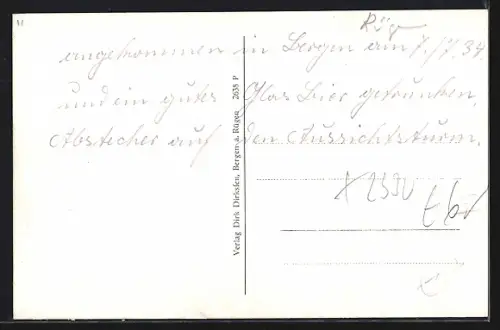 Rüg
angekommen in Bergen am 7./7.34.
und ein gutes Glas Bier getrunken.
Abstecher auf den Aussichtsturm.
Verlag Dirk Dirksen, Bergen a. Rügen 2635 P